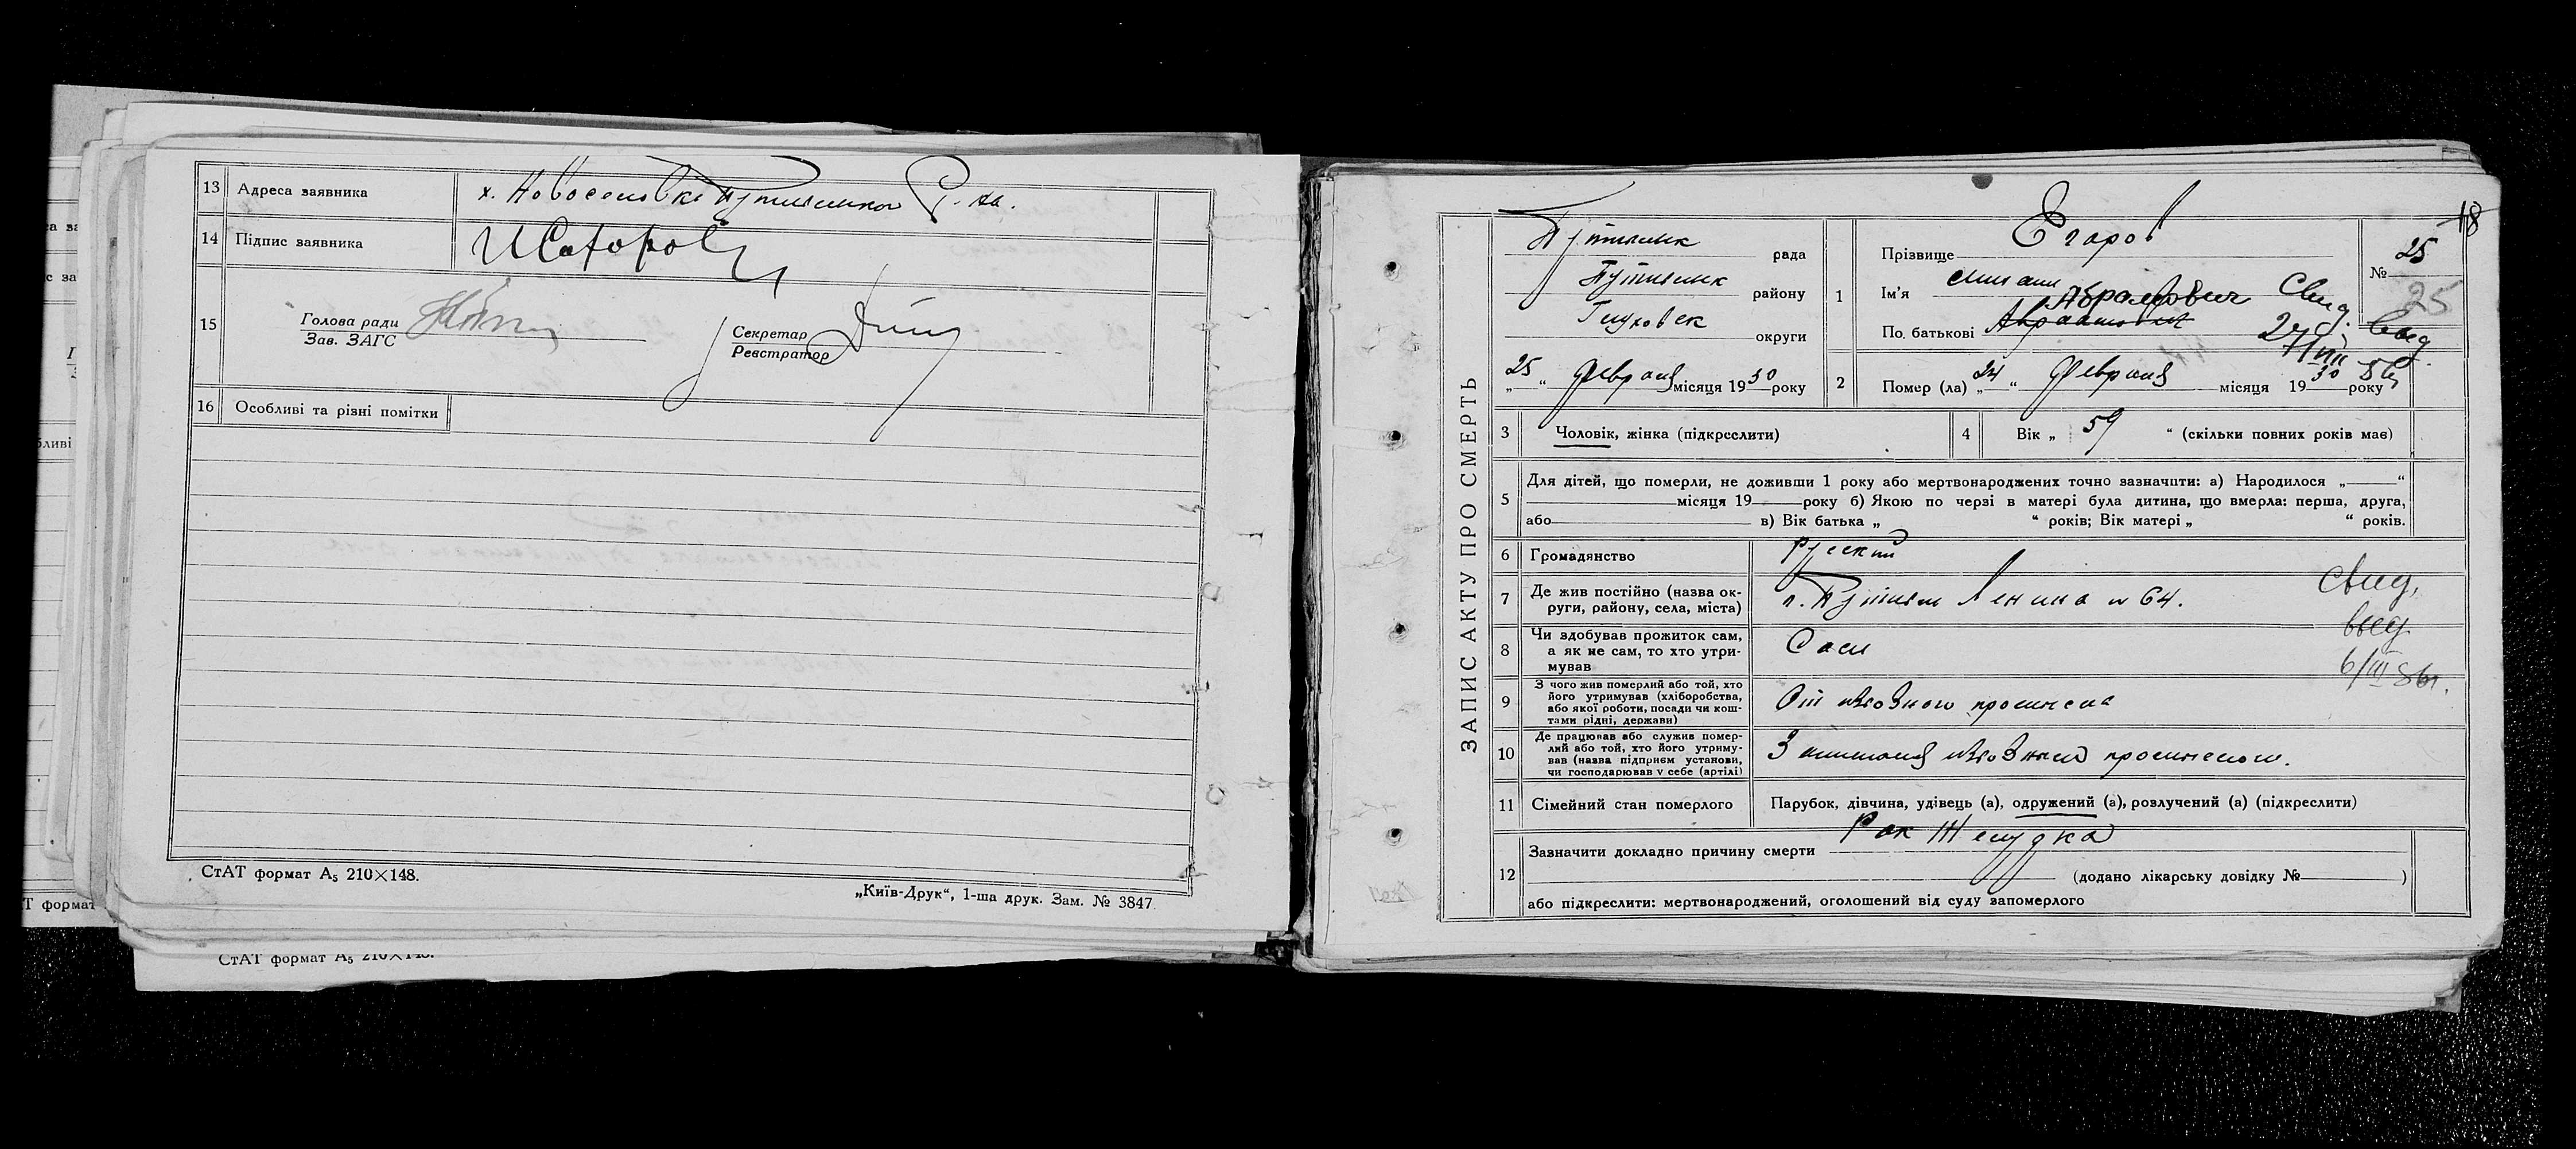 13 Адреса заявника х. Новоселовка Путивльск. Р-на.
14 Підпис заявника
15 Голова ради
Зав. ЗАГС
Секретар
Реєстратор
16 Особливі та різні помітки
СтАТ формат А₅ 210×148.
„Київ-Друк“, 1-ша друк. Зам. № 3847.
Т формат
СтАТ формат А₅ 210×148.
18
ЗАПИС АКТУ ПРО СМЕРТЬ
Путивльск рада
Путивльск району
Глуховск округи
„25“ Февраля місяця 1930 року
1 Прізвище Егоров
Ім'я
Абрамович
По батькові
Свид.
27/VIII
Выд.
№ 25
25
2 Помер (ла) „24“ Февраля місяця 1930 року
3 Чоловік, жінка (підкреслити)
4 Вік „59“ (скільки повних років має)
5 Для дітей, що померли, не доживши 1 року або мертвонароджених точно зазначити: а) Народилося „ “
місяця 19 року б) Якою по черзі в матері була дитина, що вмерла: перша, друга,
або в) Вік батька „ “ років; Вік матері „ “ років.
6 Громадянство Руский
7 Де жив постійно (назва округи, району, села, міста) г. Путивль Ленина № 64.
Свид,
выд.
6/III
8 Чи здобував прожиток сам,
а як не сам, то хто утримував Сам
9 З чого жив померлий або той, хто
його утримував (хліборобства,
або якої роботи, посади чи коштами рідні, держави) От промысла
10 Де працював або служив померлий або той, хто його утримував (назва підприєм установи,
чи господарював у себе (артілі) Занимался промыслом.
11 Сімейний стан померлого Парубок, дівчина, удівець (а), одружений (а), розлучений (а) (підкреслити)
12 Зазначити докладно причину смерти Рак Желудка
(додано лікарську довідку № )
або підкреслити: мертвонароджений, оголошений від суду запомерлого